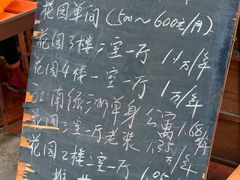 花园单间(500~600元/月)
花园3楼二室一厅 1.1万/年
花园4楼一室一厅 1万/年
江南绿洲单身公寓 1.68/年
花园三室一厅老装 1.35万/年
花园2楼二室一厅 1.05